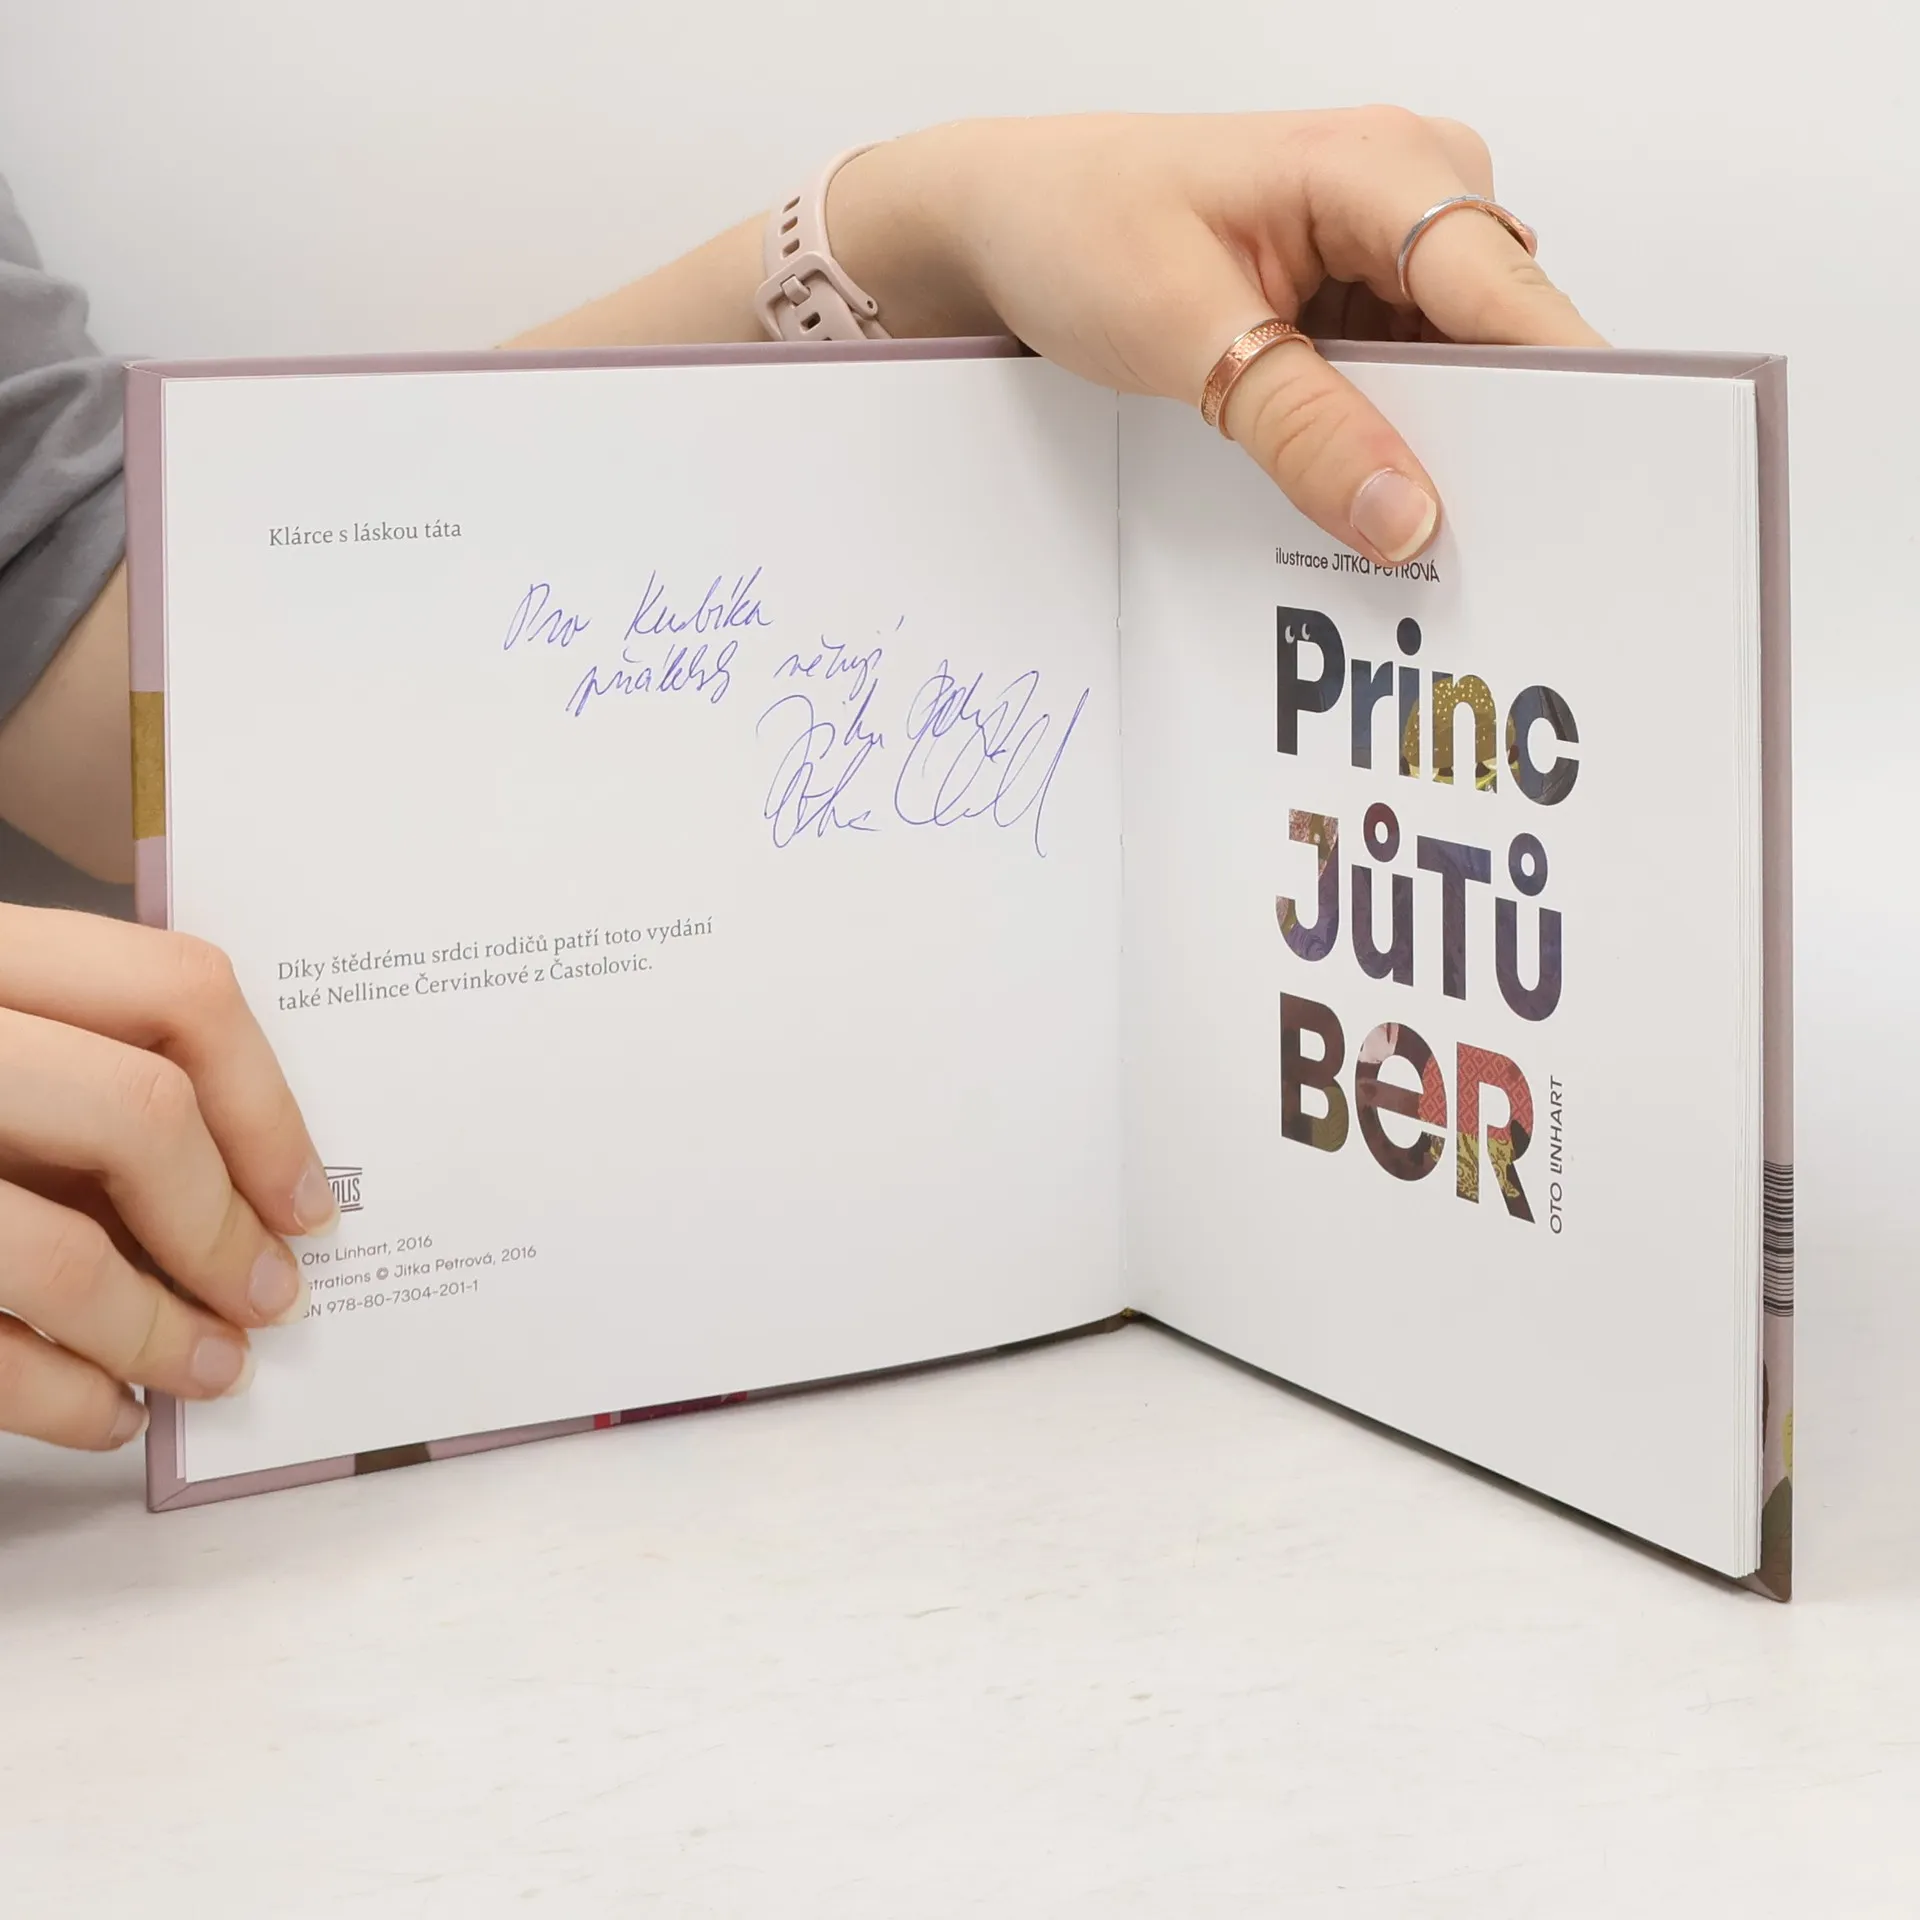 Klárce s láskou táta
Pro Kubíka
přátelsky věnují
Díky štědrému srdci rodičů patří toto vydání
také Nellince Červinkové z Častolovic.
Oto Linhart, 2016
strations © Jitka Petrová, 2016
978-80-7304-201-1
ilustrace JITKA PETROVÁ
Princ
JůTů
BeR
OTO LINHART